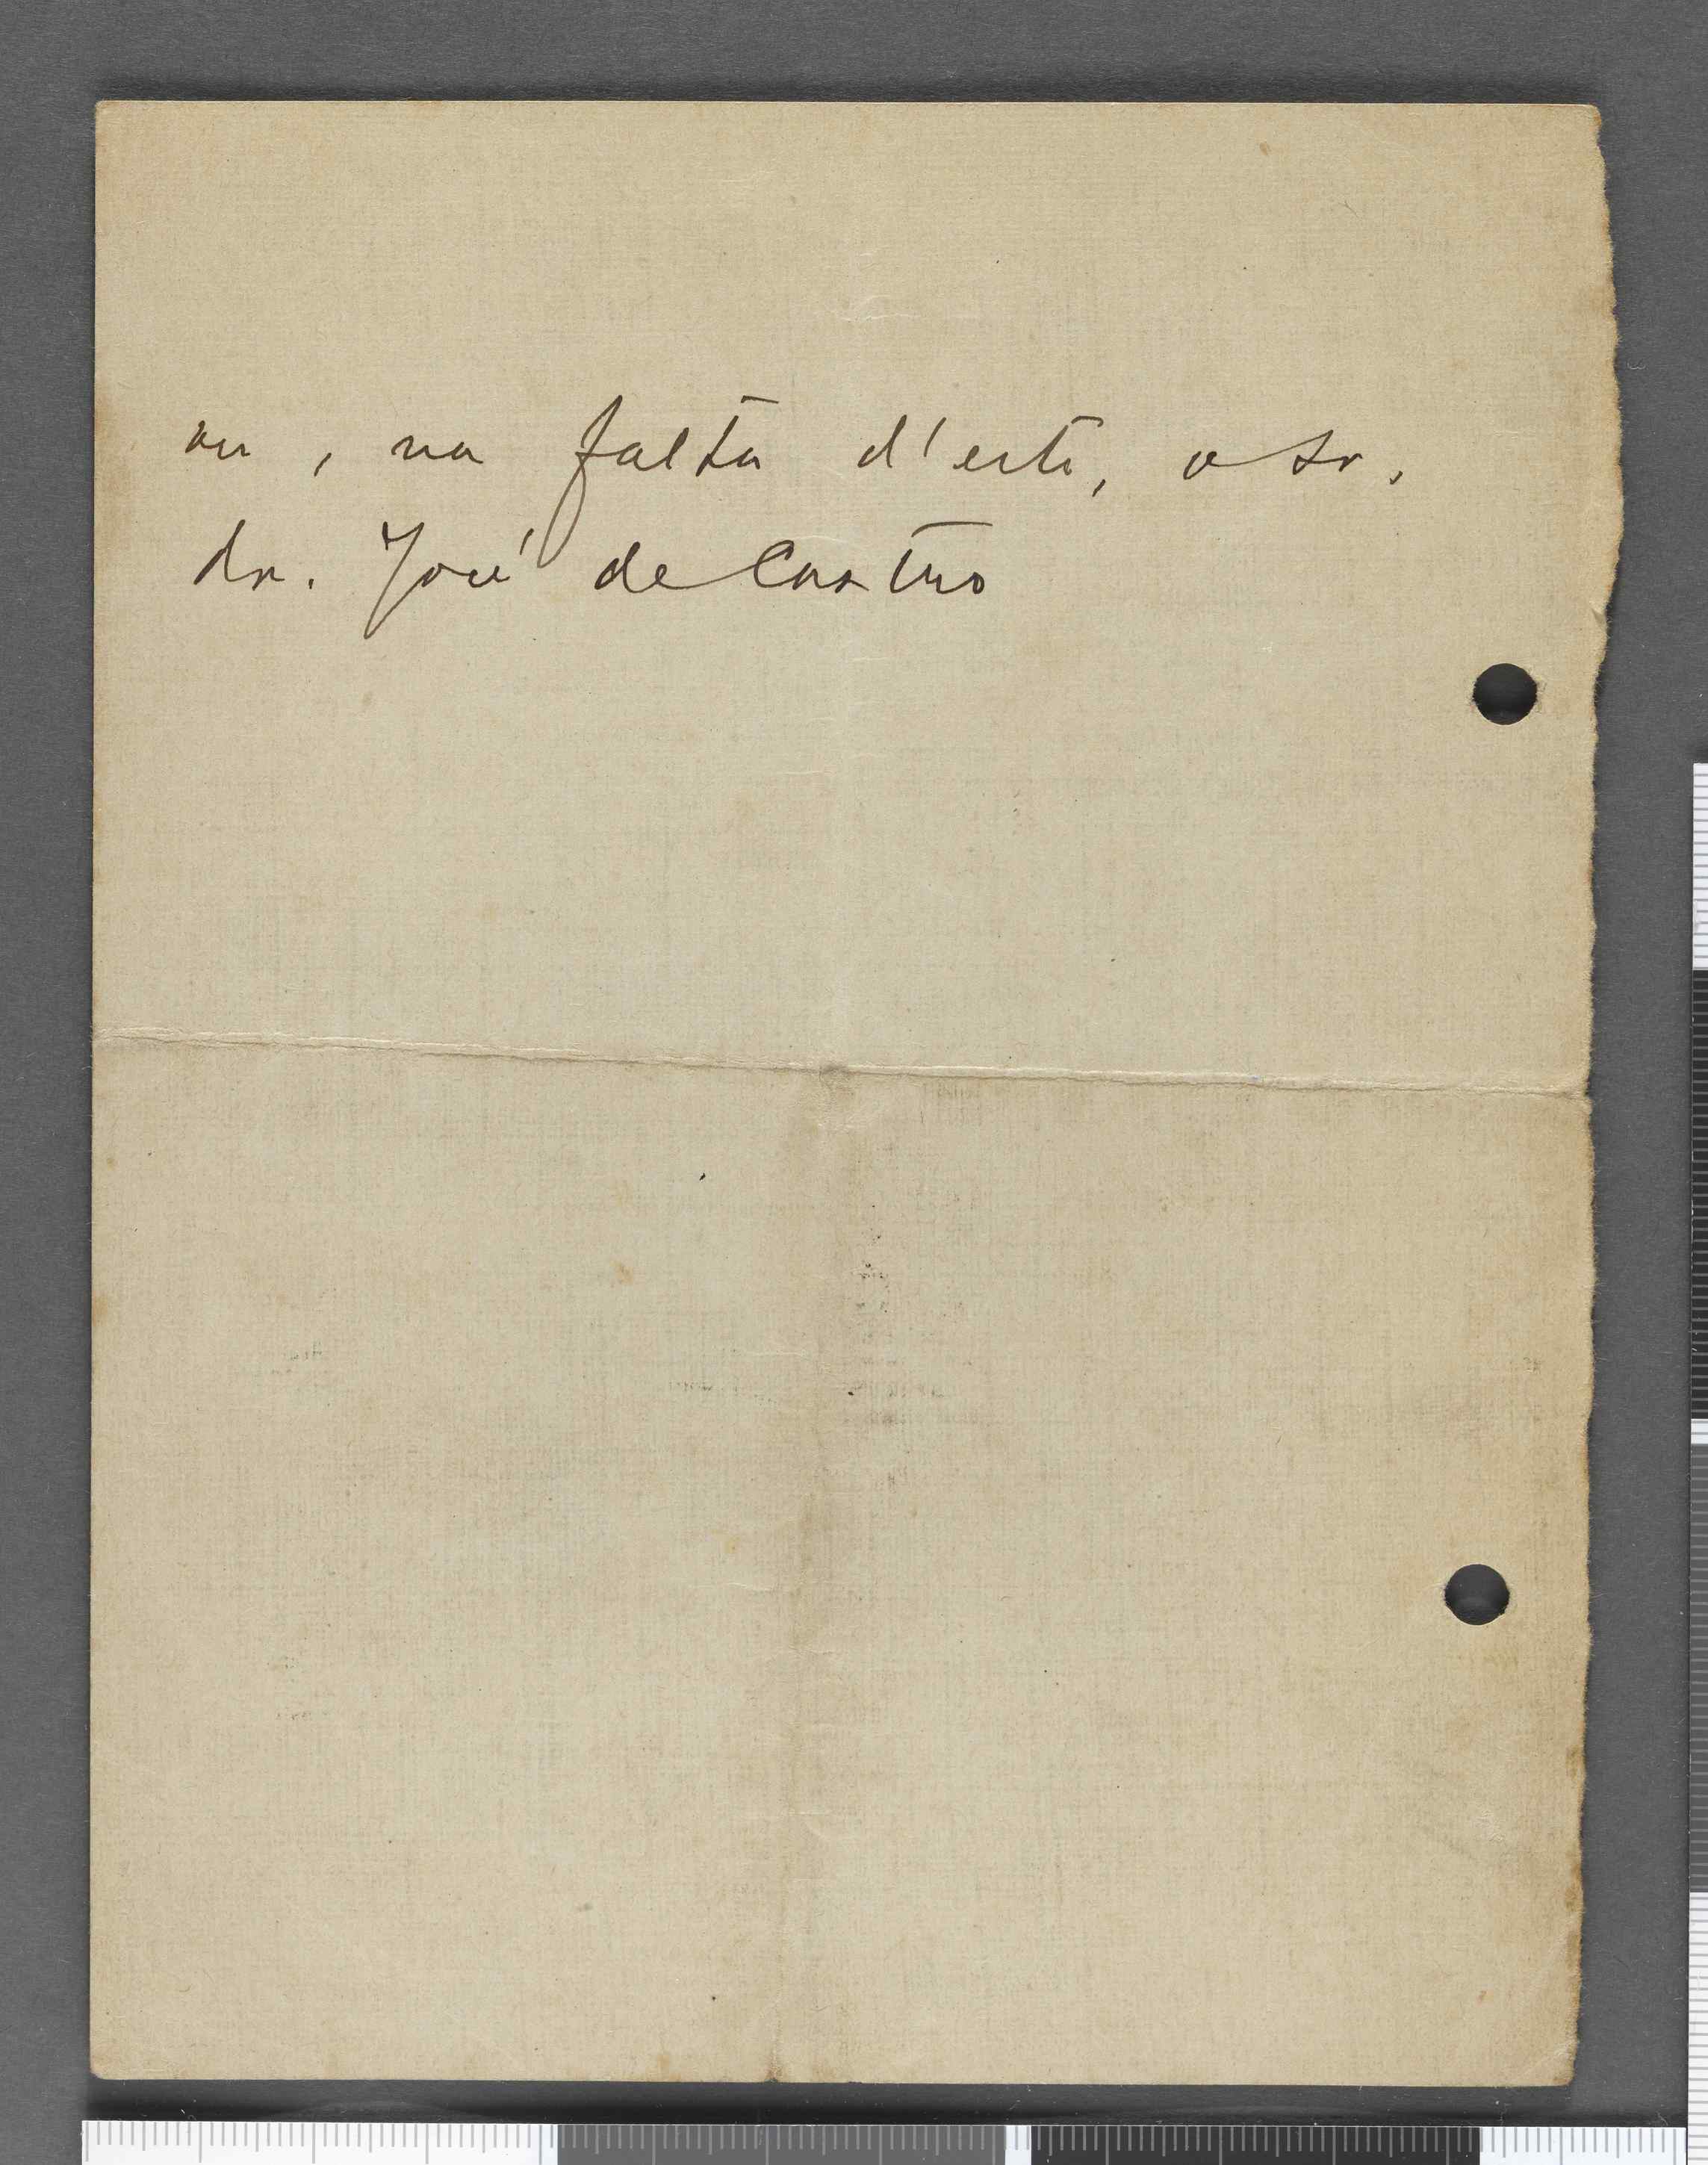 ou, na falta d'este, o sr.
dr. José de Castro